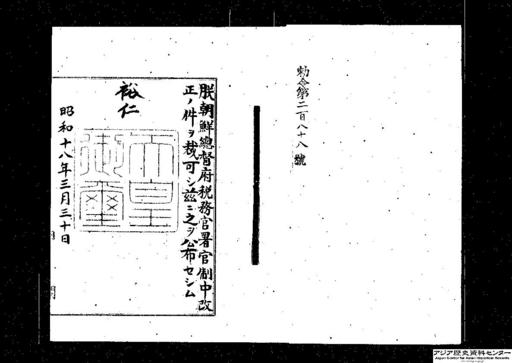 勅令第二百八十八號
朕朝鮮總督府税務官署官制中改
正ノ件ヲ裁可シ茲ニ之ヲ公布セシム
裕仁
天皇
御璽
昭和十八年三月三十日
アジア歴史資料センター
Japan Center for Asian Historical Records